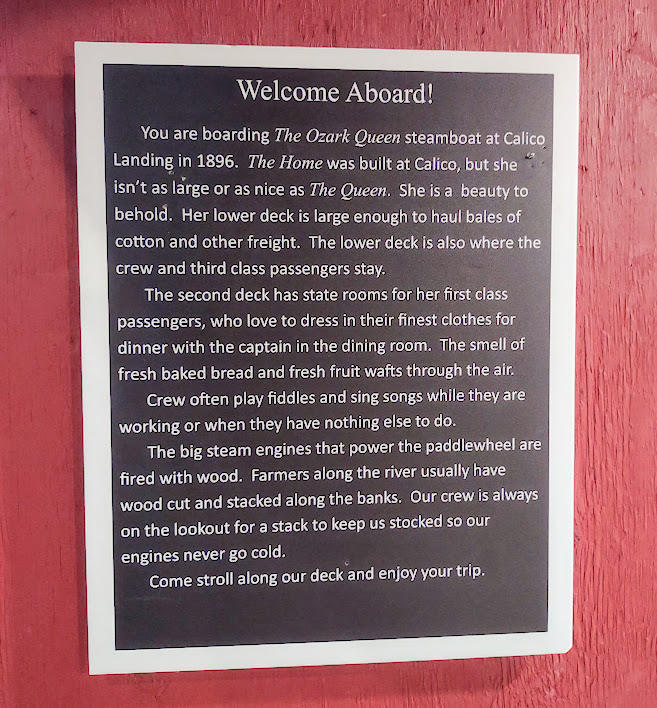 Welcome Aboard!
You are boarding The Ozark Queen steamboat at Calico
Landing in 1896. The Home was built at Calico, but she
isn't as large or as nice as The Queen. She is a beauty to
behold. Her lower deck is large enough to haul bales of
cotton and other freight. The lower deck is also where the
crew and third class passengers stay.
The second deck has state rooms for her first class
passengers, who love to dress in their finest clothes for
dinner with the captain in the dining room. The smell of
fresh baked bread and fresh fruit wafts through the air.
Crew often play fiddles and sing songs while they are
working or when they have nothing else to do.
The big steam engines that power the paddlewheel are
fired with wood. Farmers along the river usually have
wood cut and stacked along the banks. Our crew is always
on the lookout for a stack to keep us stocked so our
engines never go cold.
Come stroll along our deck and enjoy your trip.